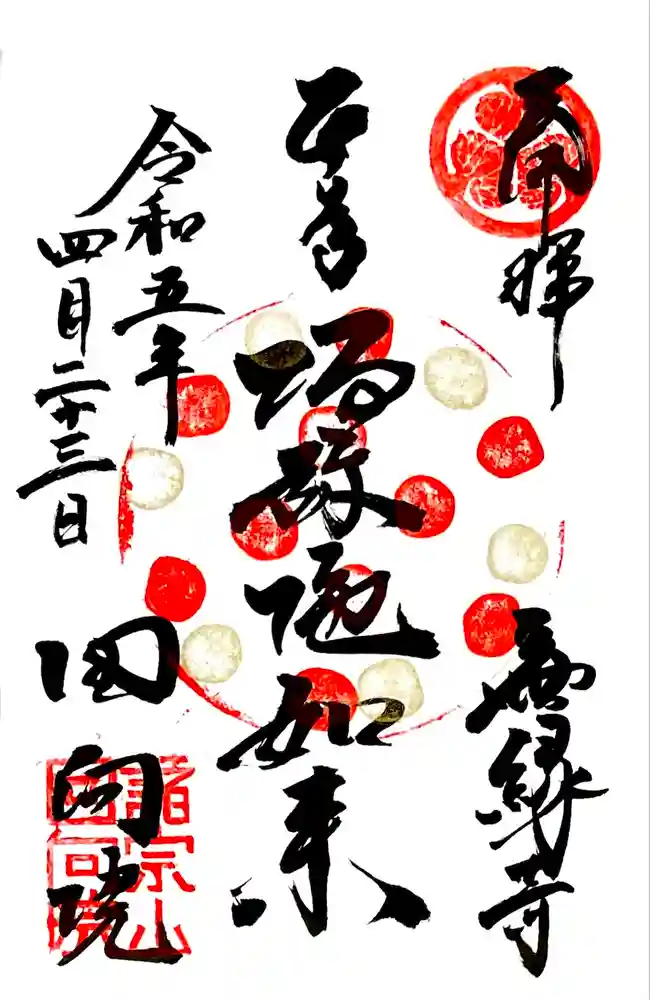 奉拝
無縁寺
本尊
阿弥陀如来
令和五年
四月二十三日
回向院
諸宗山
回向院